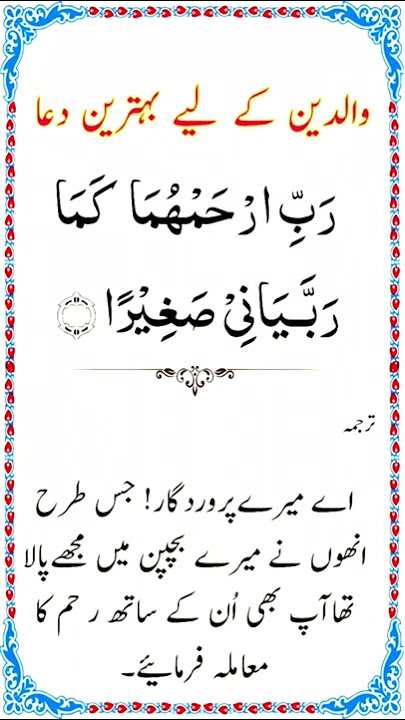 والدین کے لیے بہترین دعا
رَبِّ ارْحَمْهُمَا كَمَا
رَبَّيَانِيْ صَغِيْرًا
ترجمہ
اے میرے پروردگار! جس طرح
انھوں نے میرے بچپن میں مجھے پالا
تھا آپ بھی اُن کے ساتھ رحم کا
معاملہ فرمائیے۔